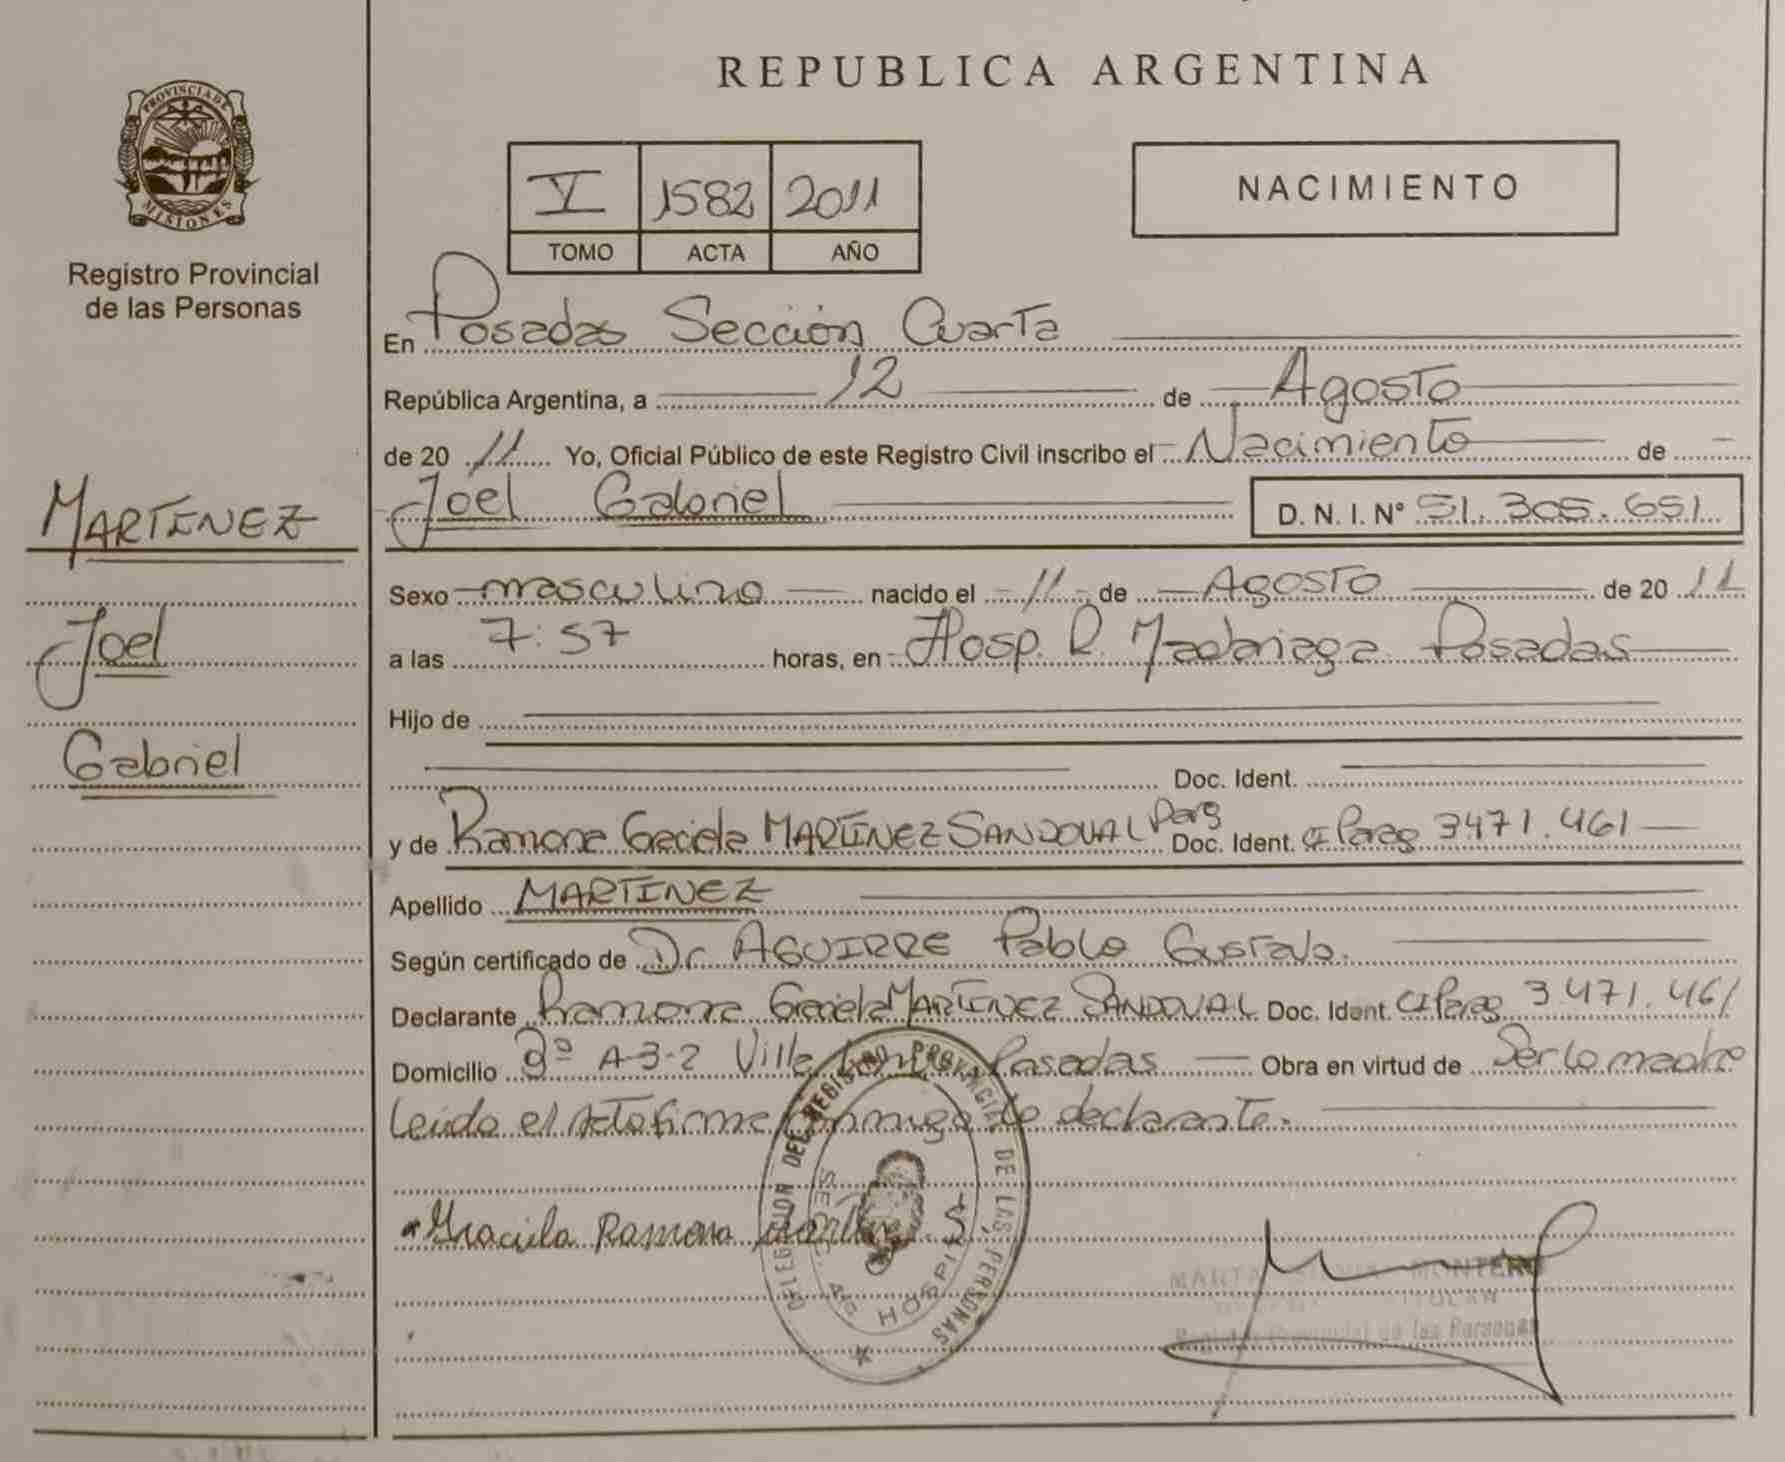 REPUBLICA ARGENTINA
PROVINCIA DE
MISIONES
Registro Provincial
de las Personas
V 1582 2011
TOMO ACTA AÑO
NACIMIENTO
En Posadas Sección Cuarta
República Argentina, a 12 de Agosto
de 20 11 Yo, Oficial Público de este Registro Civil inscribo el Nacimiento de
Joel Gabriel D. N. I. N° 51.305.651
MARTINEZ
Joel
Gabriel
Sexo masculino nacido el 11 de Agosto de 20 11
a las 7:57 horas, en Hosp. R. Madariaga Posadas
Hijo de
Doc. Ident.
y de Ramona Graciela MARTINEZ SANDOVAL Parg Doc. Ident. CI Parag 3471.461
Apellido MARTINEZ
Según certificado de Dr AGUIRRE Pablo Gustavo.
Declarante Ramona Graciela MARTINEZ SANDOVAL Doc. Ident. CI Parag 3471.461
Domicilio A-3-2 Villa Posadas Obra en virtud de Ser la madre
Leida el Acta firma conmigo la declarante.
DELEGACION DEL REGISTRO PROVINCIAL DE LAS PERSONAS
SECC. 4ta HOSPITAL
Graciela Ramona Martinez S.
MARTA MONTERO
TITULAR
Registro Provincial de las Personas